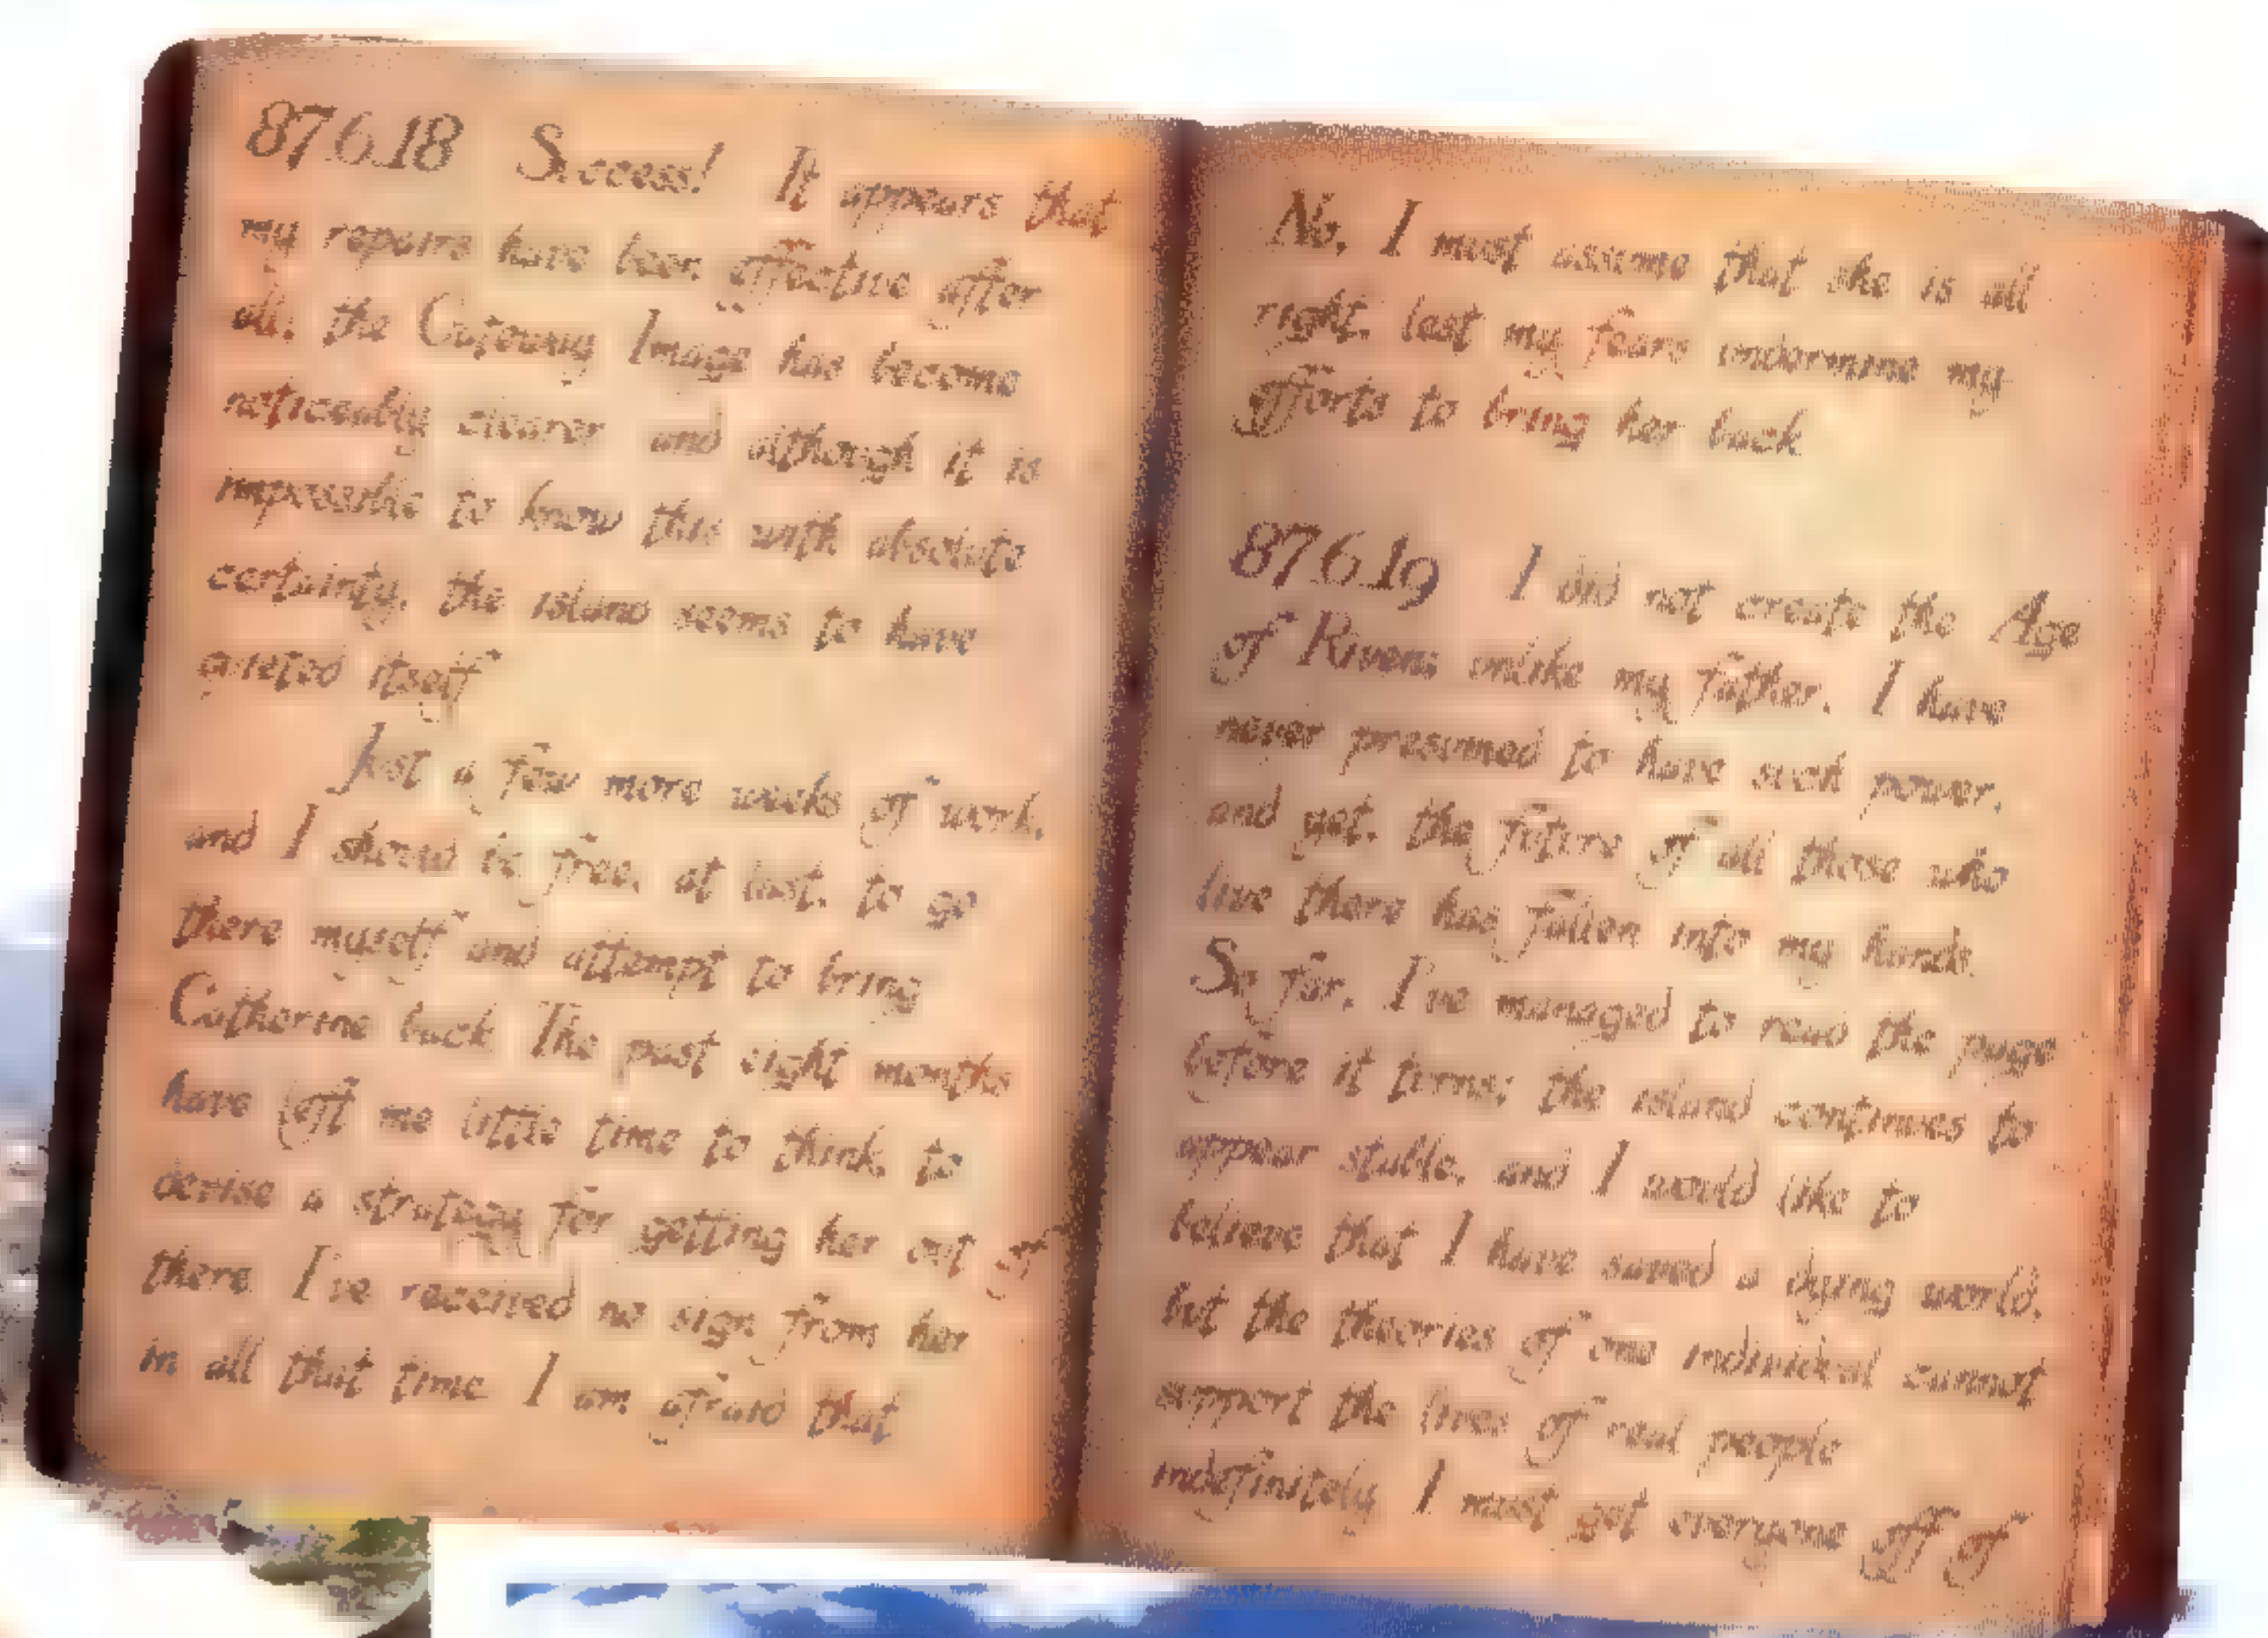 87.6.18 Success! It appears that
my repairs have been effective after
all, the Gateway Image has become
noticeably clearer and although it is
impossible to know this with absolute
certainty, the island seems to have
quieted itself
Just a few more weeks of work,
and I should be free, at last, to go
there myself and attempt to bring
Catherine back. The past eight months
have left me little time to think, to
devise a strategy for getting her out of
there. I've received no sign from her
in all that time. I am afraid that
No, I must assume that she is all
right, lest my fears undermine my
efforts to bring her back
87.6.19 I did not create the Age
of Riven; unlike my father, I have
never presumed to have such power,
and yet, the future of all those who
live there has fallen into my hands.
So far, I've managed to read the page
before it turns; the island continues to
appear stable, and I would like to
believe that I have saved a dying world,
but the theories of one individual cannot
support the lives of real people
indefinitely. I must get everyone off of